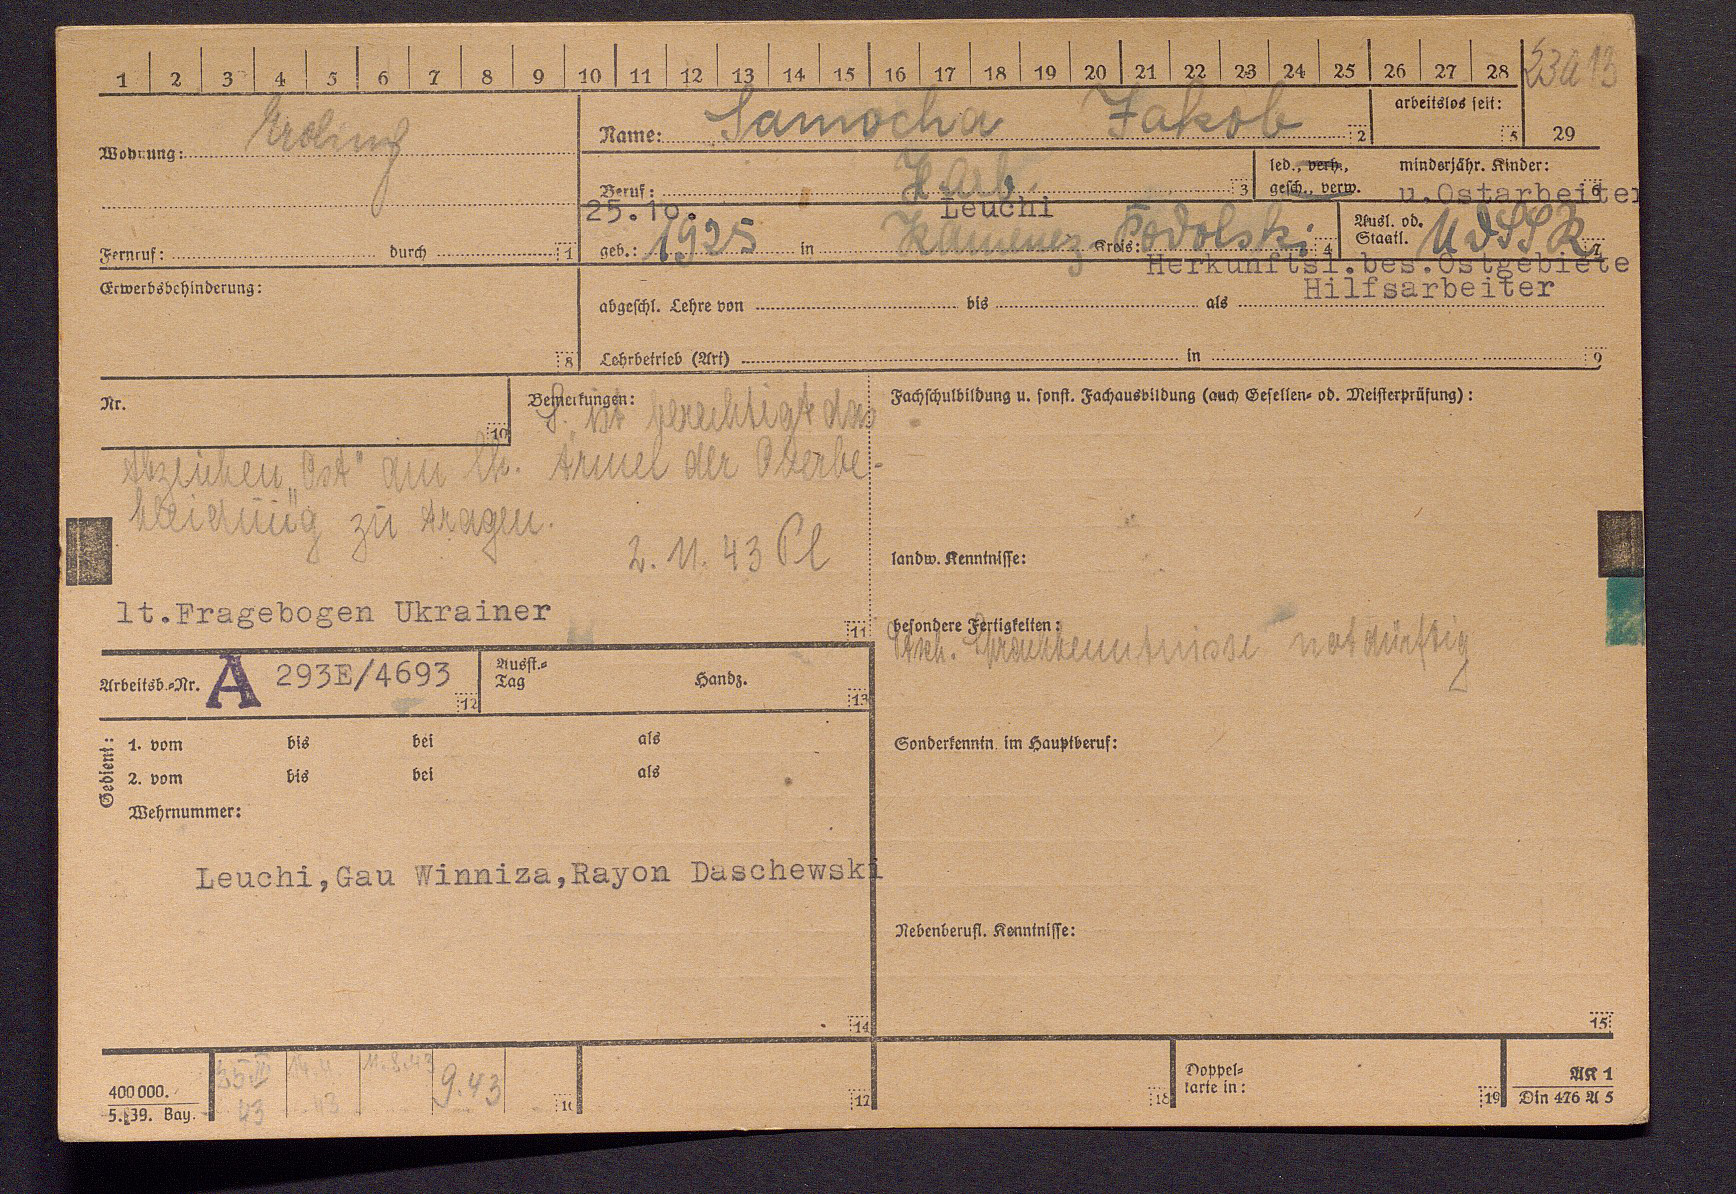 1 2 3 4 5 6 7 8 9 10 11 12 13 14 15 16 17 18 19 20 21 22 23 24 25 26 27 28 23a 13
Wohnung: Erding
Name: Samocha Jakob 2
arbeitslos seit: 5
29
Beruf: 3
led., verh.,
gesch., verw.
minderjähr. Kinder: 6
u.Ostarbeiter
25.10. Leuchi
Fernruf: durch 1
geb.: 1925 in Kamenez Kreis: Podolski 4
Ausl. od.
Staatl. UdSSR 7
Herkunftsl.bes.Ostgebiete
Hilfsarbeiter
Erwerbsbehinderung: 8
abgeschl. Lehre von bis als
Lehrbetrieb (Art) in 9
Nr. 10
Bemerkungen:
S. ist berechtigt das
Abzeichen "Ost" am lk. Ärmel der Oberbe-
kleidung zu tragen.
2. 11. 43 Pl
lt.Fragebogen Ukrainer
11
Fachschulbildung u. sonst. Fachausbildung (auch Gesellen- od. Meisterprüfung):
landw. Kenntnisse:
besondere Fertigkeiten:
Dtsch. Sprachkenntnisse notdürftig
Arbeitsb.-Nr. A 293E/4693 12
Ausst.-
Tag
Handz.
13
Sonderkenntn. im Hauptberuf:
Gedient:
1. vom bis bei als
2. vom bis bei als
Wehrnummer:
Leuchi,Gau Winniza,Rayon Daschewski
14
Nebenberufl. Kenntnisse:
15
400000.
5. 39. Bay.
11.8.43
9.43
16
17
18
Doppel-
karte in:
19
AK 1
Din 476 A 5